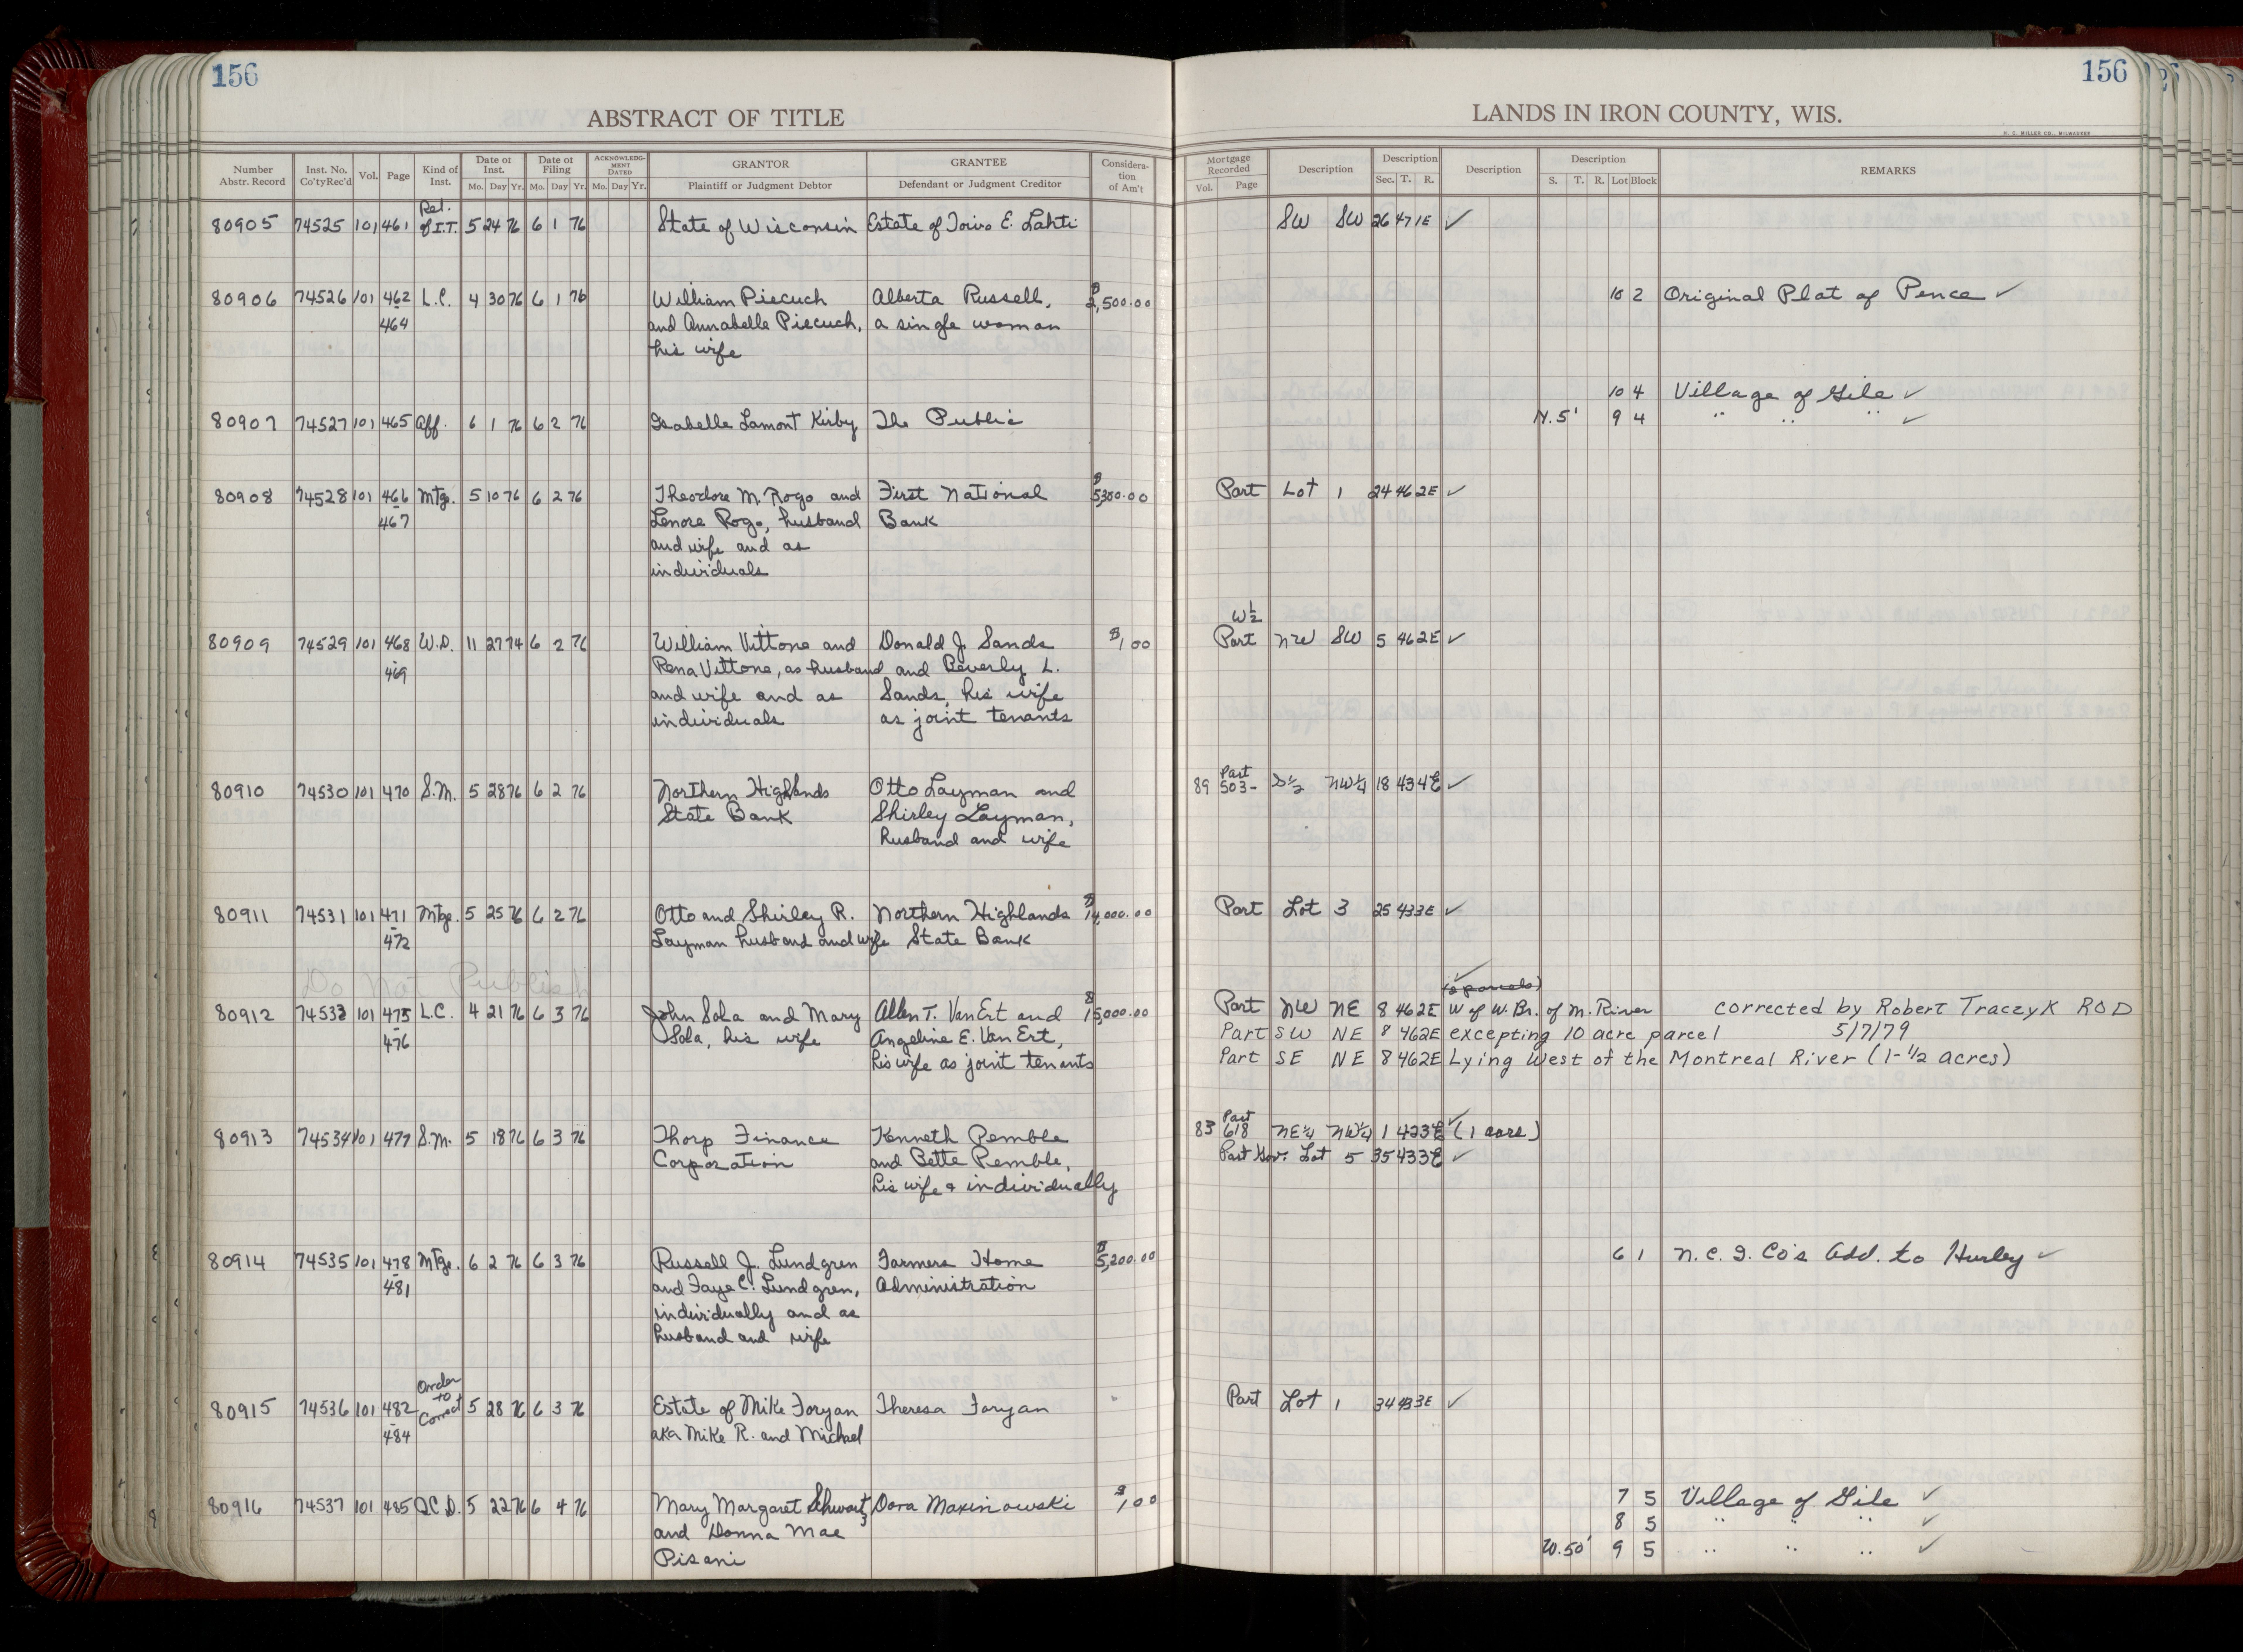 156
156
ABSTRACT OF TITLE
LANDS IN IRON COUNTY, WIS.
H. C. MILLER CO., MILWAUKEE
Number Abstr. Record Inst. No. Co'ty Rec'd Vol. Page Kind of Inst. Date of Inst. Mo. Day Yr. Date of Filing Mo. Day Yr. ACKNOWLEDGMENT DATED Mo. Day Yr. GRANTOR Plaintiff or Judgment Debtor GRANTEE Defendant or Judgment Creditor Consideration of Am't
Mortgage Recorded Vol. Page Description Description Sec. T. R. Description Description S. T. R. Lot Block REMARKS
Rel.
80905 74525 101 461 of I.T. 5 24 76 6 1 76 State of Wisconsin Estate of Toivo E. Lahti SW SW 26 47 1E ✓
80906 74526 101 462 L.C. 4 30 76 6 1 76 William Piecuch Alberta Russell, $2,500.00 10 2 Original Plat of Pence ✓
464 and Annabelle Piecuch, a single woman
his wife
10 4 Village of Gile ✓
80907 74527 101 465 Aff. 6 1 76 6 2 76 Isabelle Lamont Kirby The Public N. 5' 9 4 " " ✓
80908 74528 101 466 Mtge. 5 10 76 6 2 76 Theodore M. Rogo and First National $5350.00 Part Lot 1 24 46 2E ✓
467 Lenore Rogo, husband Bank
and wife and as
individuals
W½
80909 74529 101 468 W.D. 11 27 74 6 2 76 William Vittone and Donald J. Sands $1.00 Part NW SW 5 46 2E ✓
469 Rena Vittone, as husband and Beverly L.
and wife and as Sands, his wife
individuals as joint tenants
Part
80910 74530 101 470 S.M. 5 28 76 6 2 76 Northern Highlands Otto Layman and 89 503- S½ NW¼ 18 43 4E ✓
State Bank Shirley Layman,
husband and wife
80911 74531 101 471 Mtge. 5 25 76 6 2 76 Otto and Shirley R. Northern Highlands $14,000.00 Part Lot 3 25 43 3E ✓
472 Layman husband and wife State Bank
Do Not Publish
✓ (2 parcels)
80912 74533 101 475 L.C. 4 21 76 6 3 76 John Sola and Mary Allen T. VanErt and $15,000.00 Part NW NE 8 46 2E W of W. Br. of M. River corrected by Robert Traczyk ROD
476 Sola, his wife Angeline E. Van Ert, Part SW NE 8 46 2E excepting 10 acre parcel 5/7/79
his wife as joint tenants Part SE NE 8 46 2E Lying West of the Montreal River (1-½ acres)
Part
80913 74534 101 477 S.M. 5 18 76 6 3 76 Thorp Finance Kenneth Pemble 83 618 NE¼ NW¼ 1 42 3E ✓ (1 acre)
Corporation and Bette Pemble, Part Gov. Lot 5 35 43 3E ✓
his wife & individually
80914 74535 101 478 Mtge. 6 2 76 6 3 76 Russell J. Lundgren Farmers Home $5,200.00 6 1 N. C. I. Co's Add. to Hurley ✓
481 and Faye C. Lundgren, Administration
individually and as
husband and wife
Order
to
80915 74536 101 482 Correct 5 28 76 6 3 76 Estate of Mike Foryan Theresa Foryan Part Lot 1 34 43 3E ✓
484 aka Mike R. and Michael
80916 74537 101 485 Q.C.D. 5 22 76 6 4 76 Mary Margaret Schwartz Dora Maxinowski $1.00 7 5 Village of Gile ✓
and Donna Mae 8 5 " " " ✓
Pisani W. 50' 9 5 " " " ✓